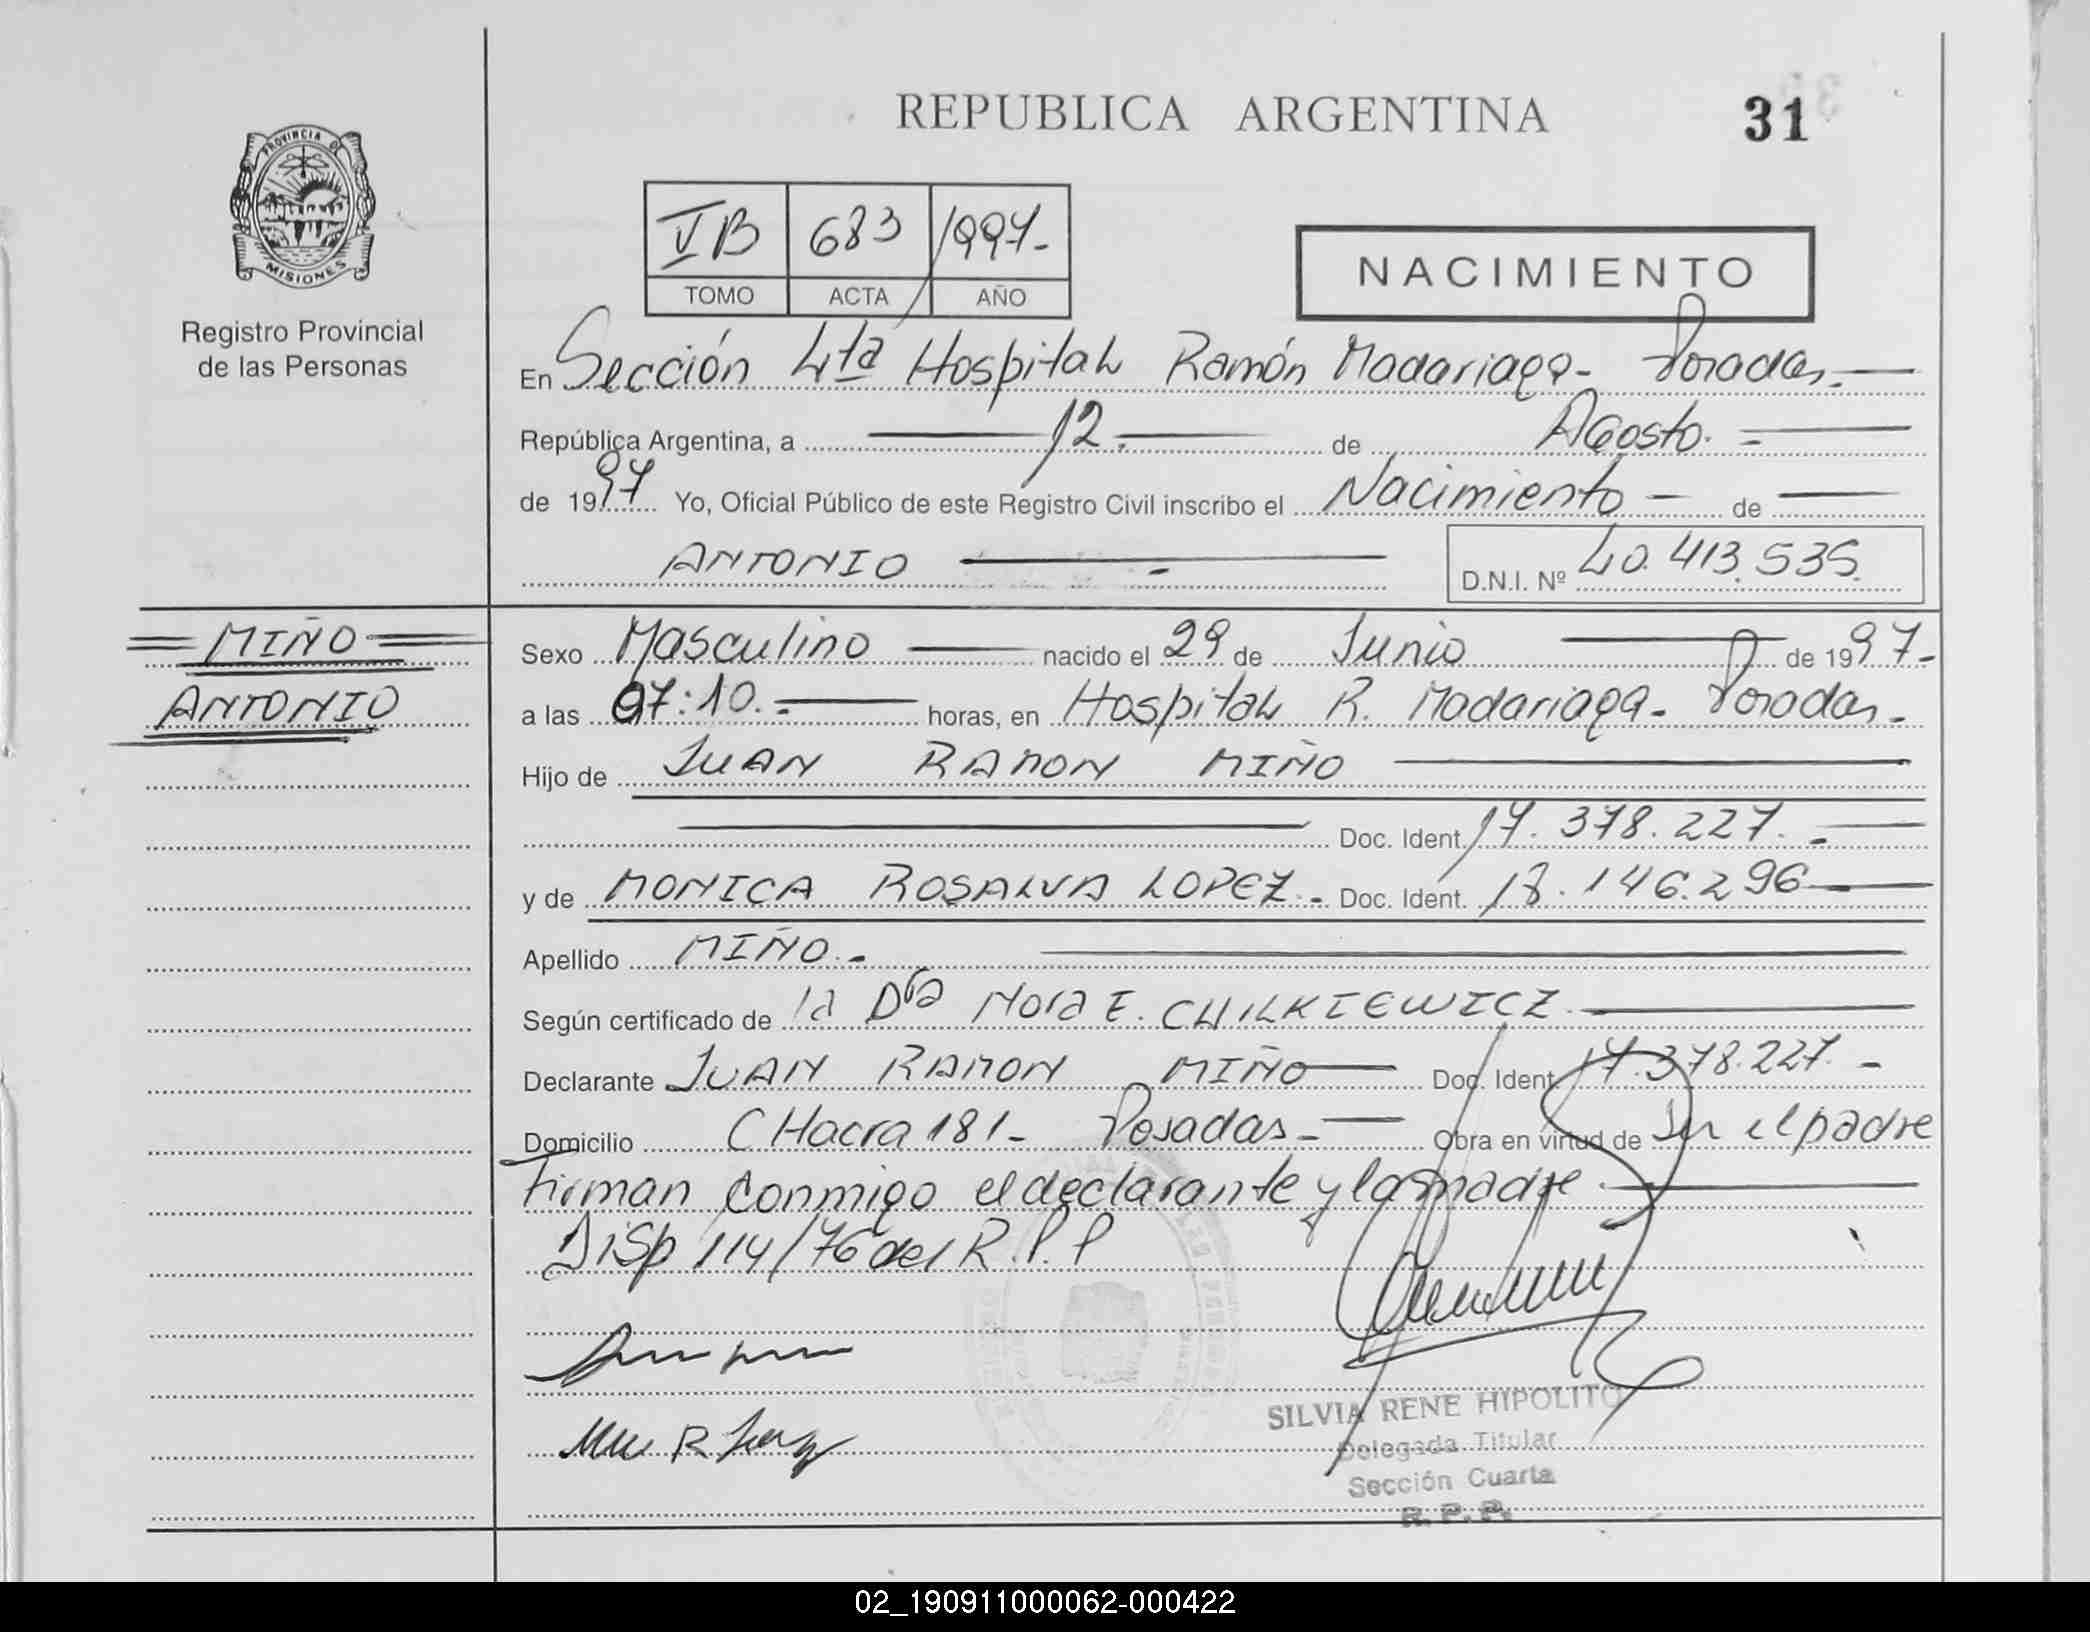 REPUBLICA ARGENTINA
31
PROVINCIA DE
MISIONES
Registro Provincial
de las Personas
VB 683 1997.-
TOMO ACTA AÑO
NACIMIENTO
En Sección 4ta Hospital Ramón Madariaga- Posadas.-
República Argentina, a 12.- de Agosto.-
de 1997 Yo, Oficial Público de este Registro Civil inscribo el Nacimiento - de
ANTONIO - D.N.I. Nº 40.413.535.
MIÑO
ANTONIO
Sexo Masculino nacido el 29 de Junio de 1997.-
a las 07:10.- horas, en Hospital R. Madariaga- Posadas.-
Hijo de JUAN RAMON MIÑO
Doc. Ident. 17.378.227.-
y de MONICA ROSALVA LOPEZ.- Doc. Ident. 18.146.296
Apellido MIÑO.-
Según certificado de la Dra Nora E. CHILKIEWICZ.
Declarante JUAN RAMON MIÑO Doc. Ident. 17.378.227.-
Domicilio CHacra 181- Posadas.- Obra en virtud de Ser el padre
Firman conmigo el declarante y la madre.
Disp 114/76 del R.P.P
SILVIA RENE HIPOLITO
Delegada Titular
Sección Cuarta
R. P. P.
02_190911000062-000422